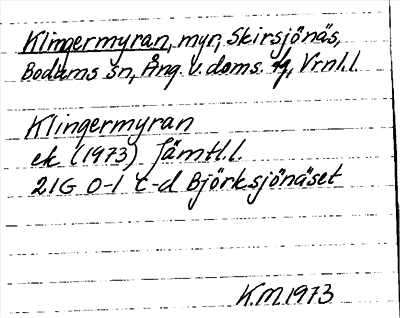 Klingermyran, myr, Skirsjönäs,
Bodums sn, Ång. v. doms. tg, Vrnl.l.
Klingermyran
ek (1973) Jämtl.l.
21G 0-1 c-d Björksjönäset
K.M. 1973